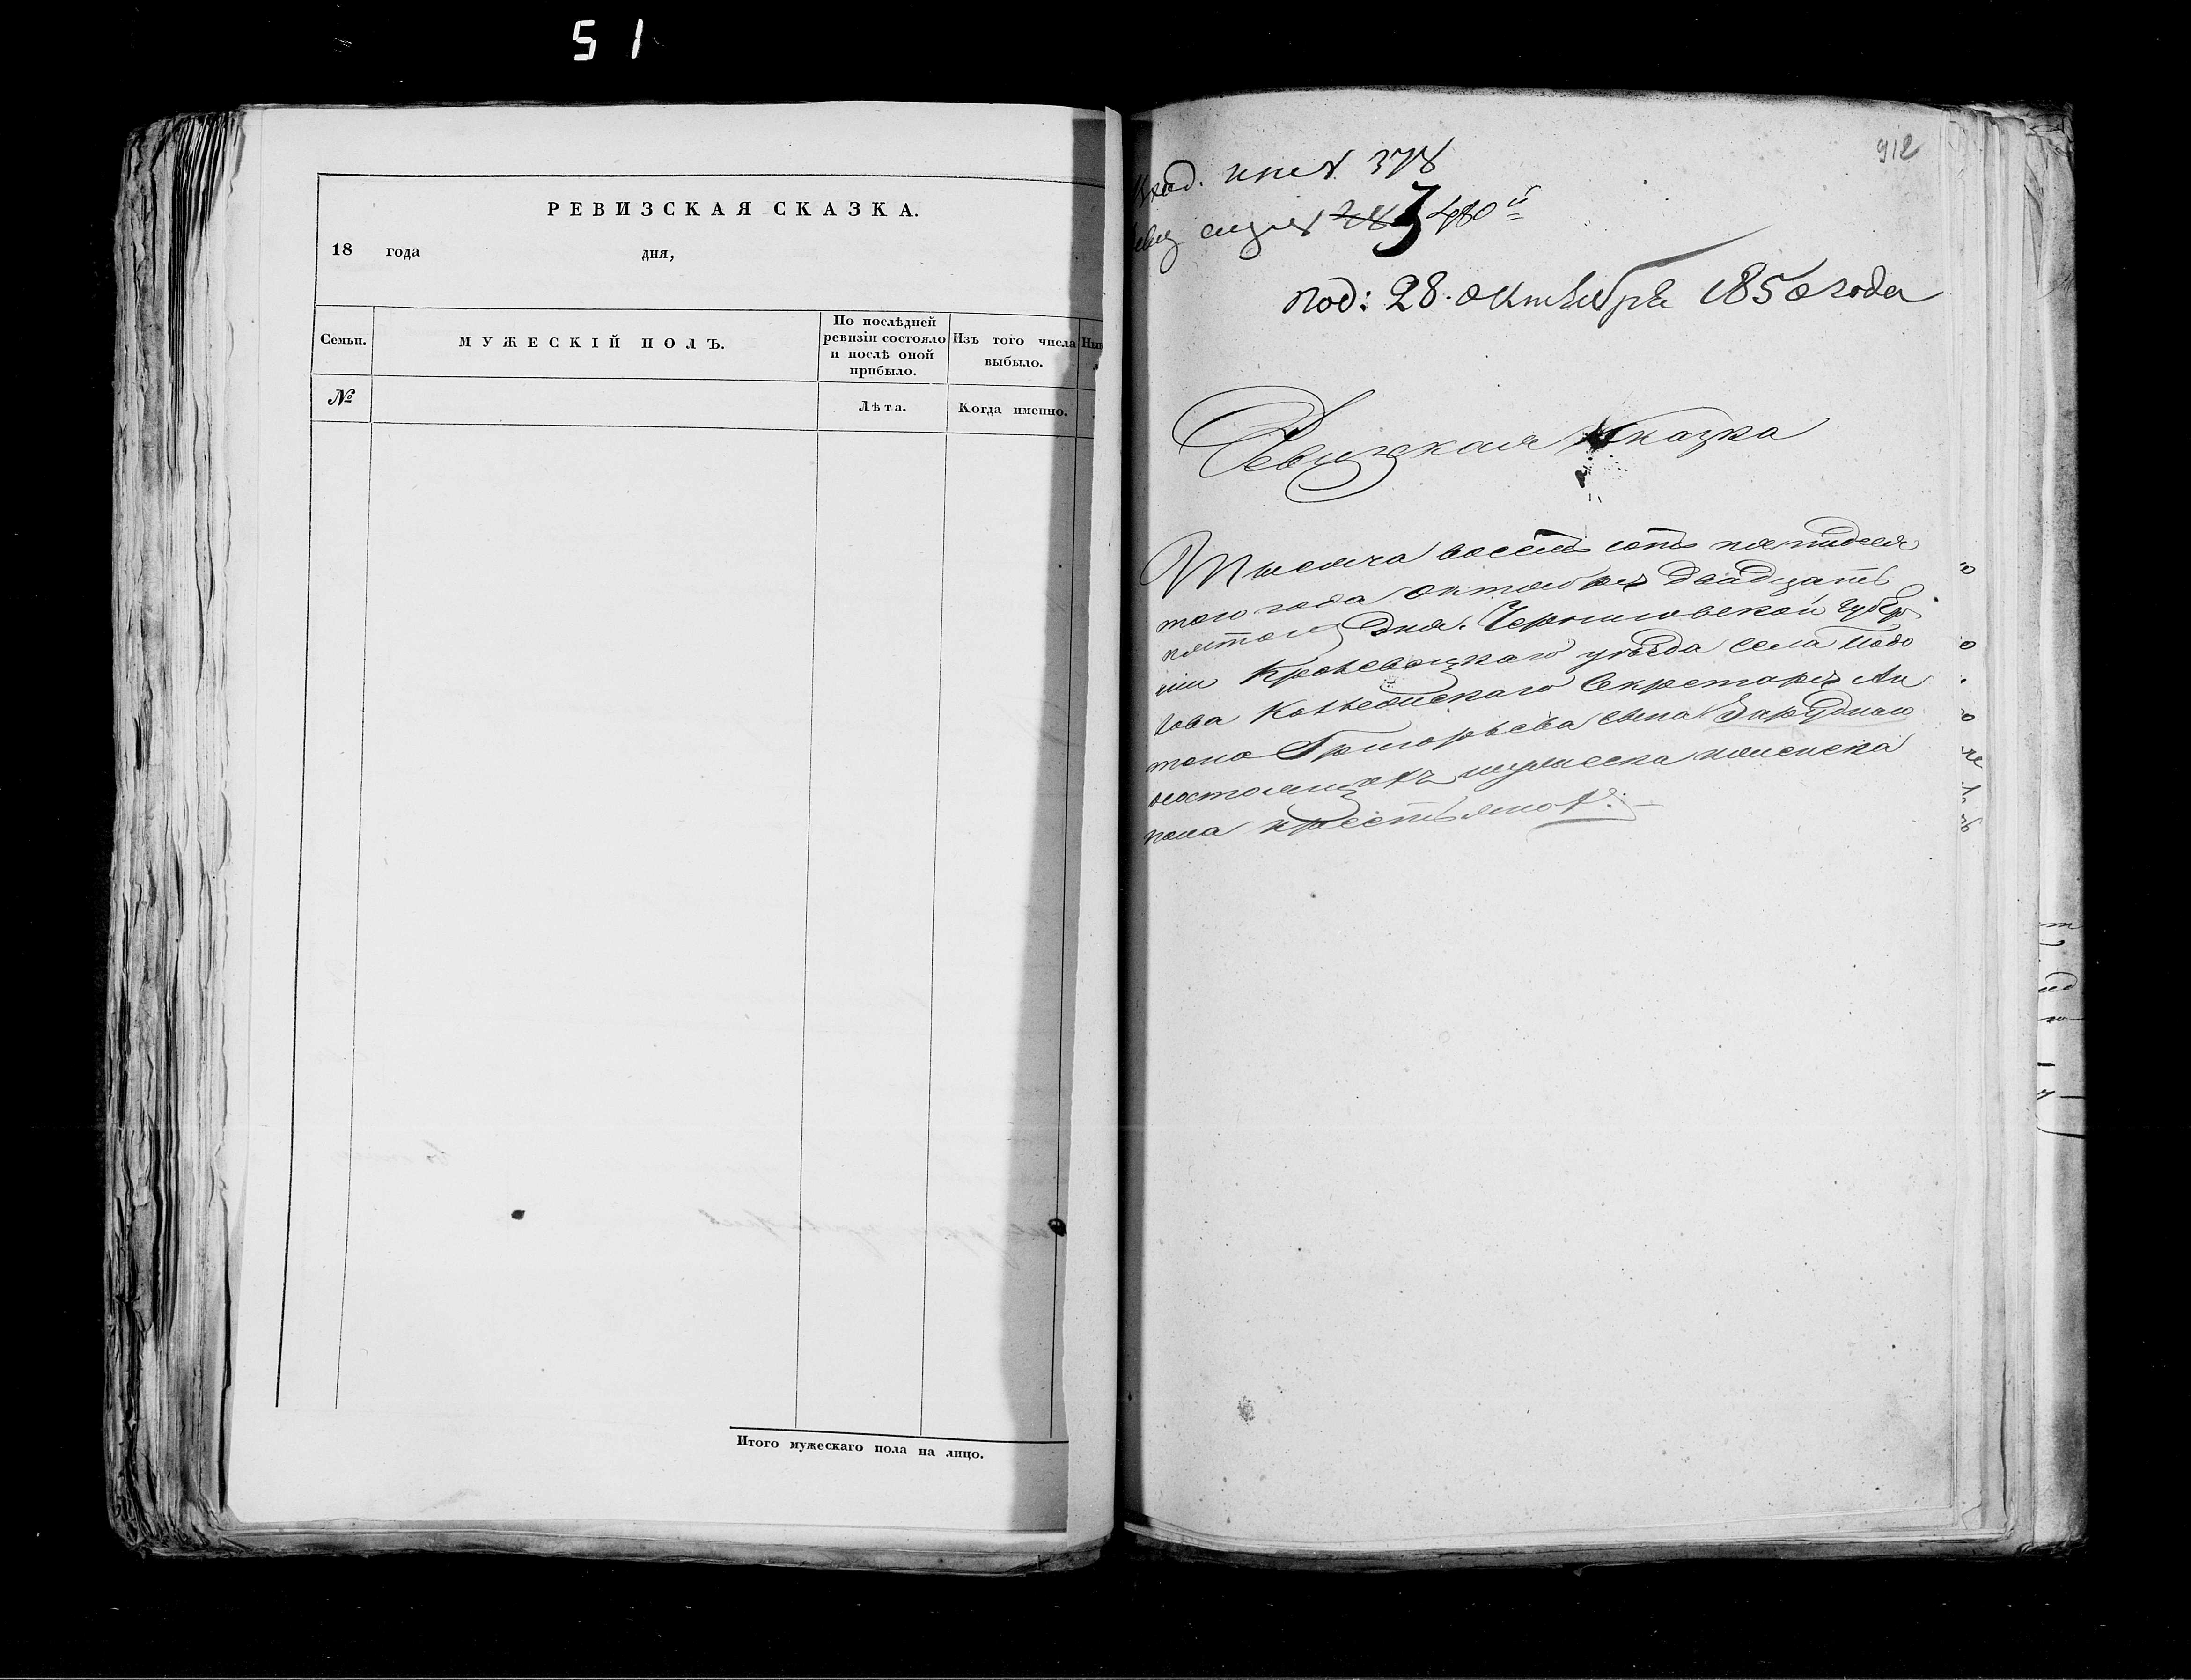 51
РЕВИЗСКАЯ СКАЗКА.
18 года дня,
Семьи.
МУЖЕСКІЙ ПОЛЪ.
По послѣдней
ревизіи состояло
и послѣ оной
прибыло.
Изъ того числа
выбыло.
№
Лѣта.
Когда именно.
Итого мужескаго пола на лицо.
912
378
480й
под: 28. октября 1850 года
Ревизская сказка
Тысяча восемь сотъ пятидеся
того года октября двадцать
пятого дня. Черниговской Губер
ніи Кролевецкаго уѣзда села Подо
лова Коллежскаго Секретаря Ан
тона Григорьева сына Заруднаго
о состоящихъ мужеска и женска
пола крестьянахъ: